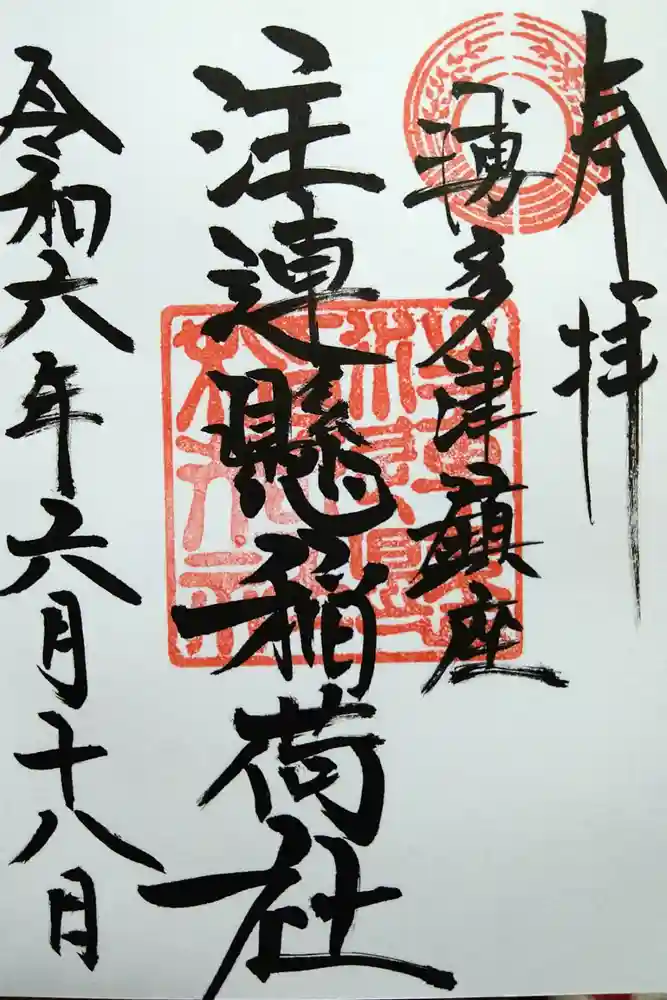 奉拝
博多津鎮座
注連懸稲荷社
令和六年六月十八日